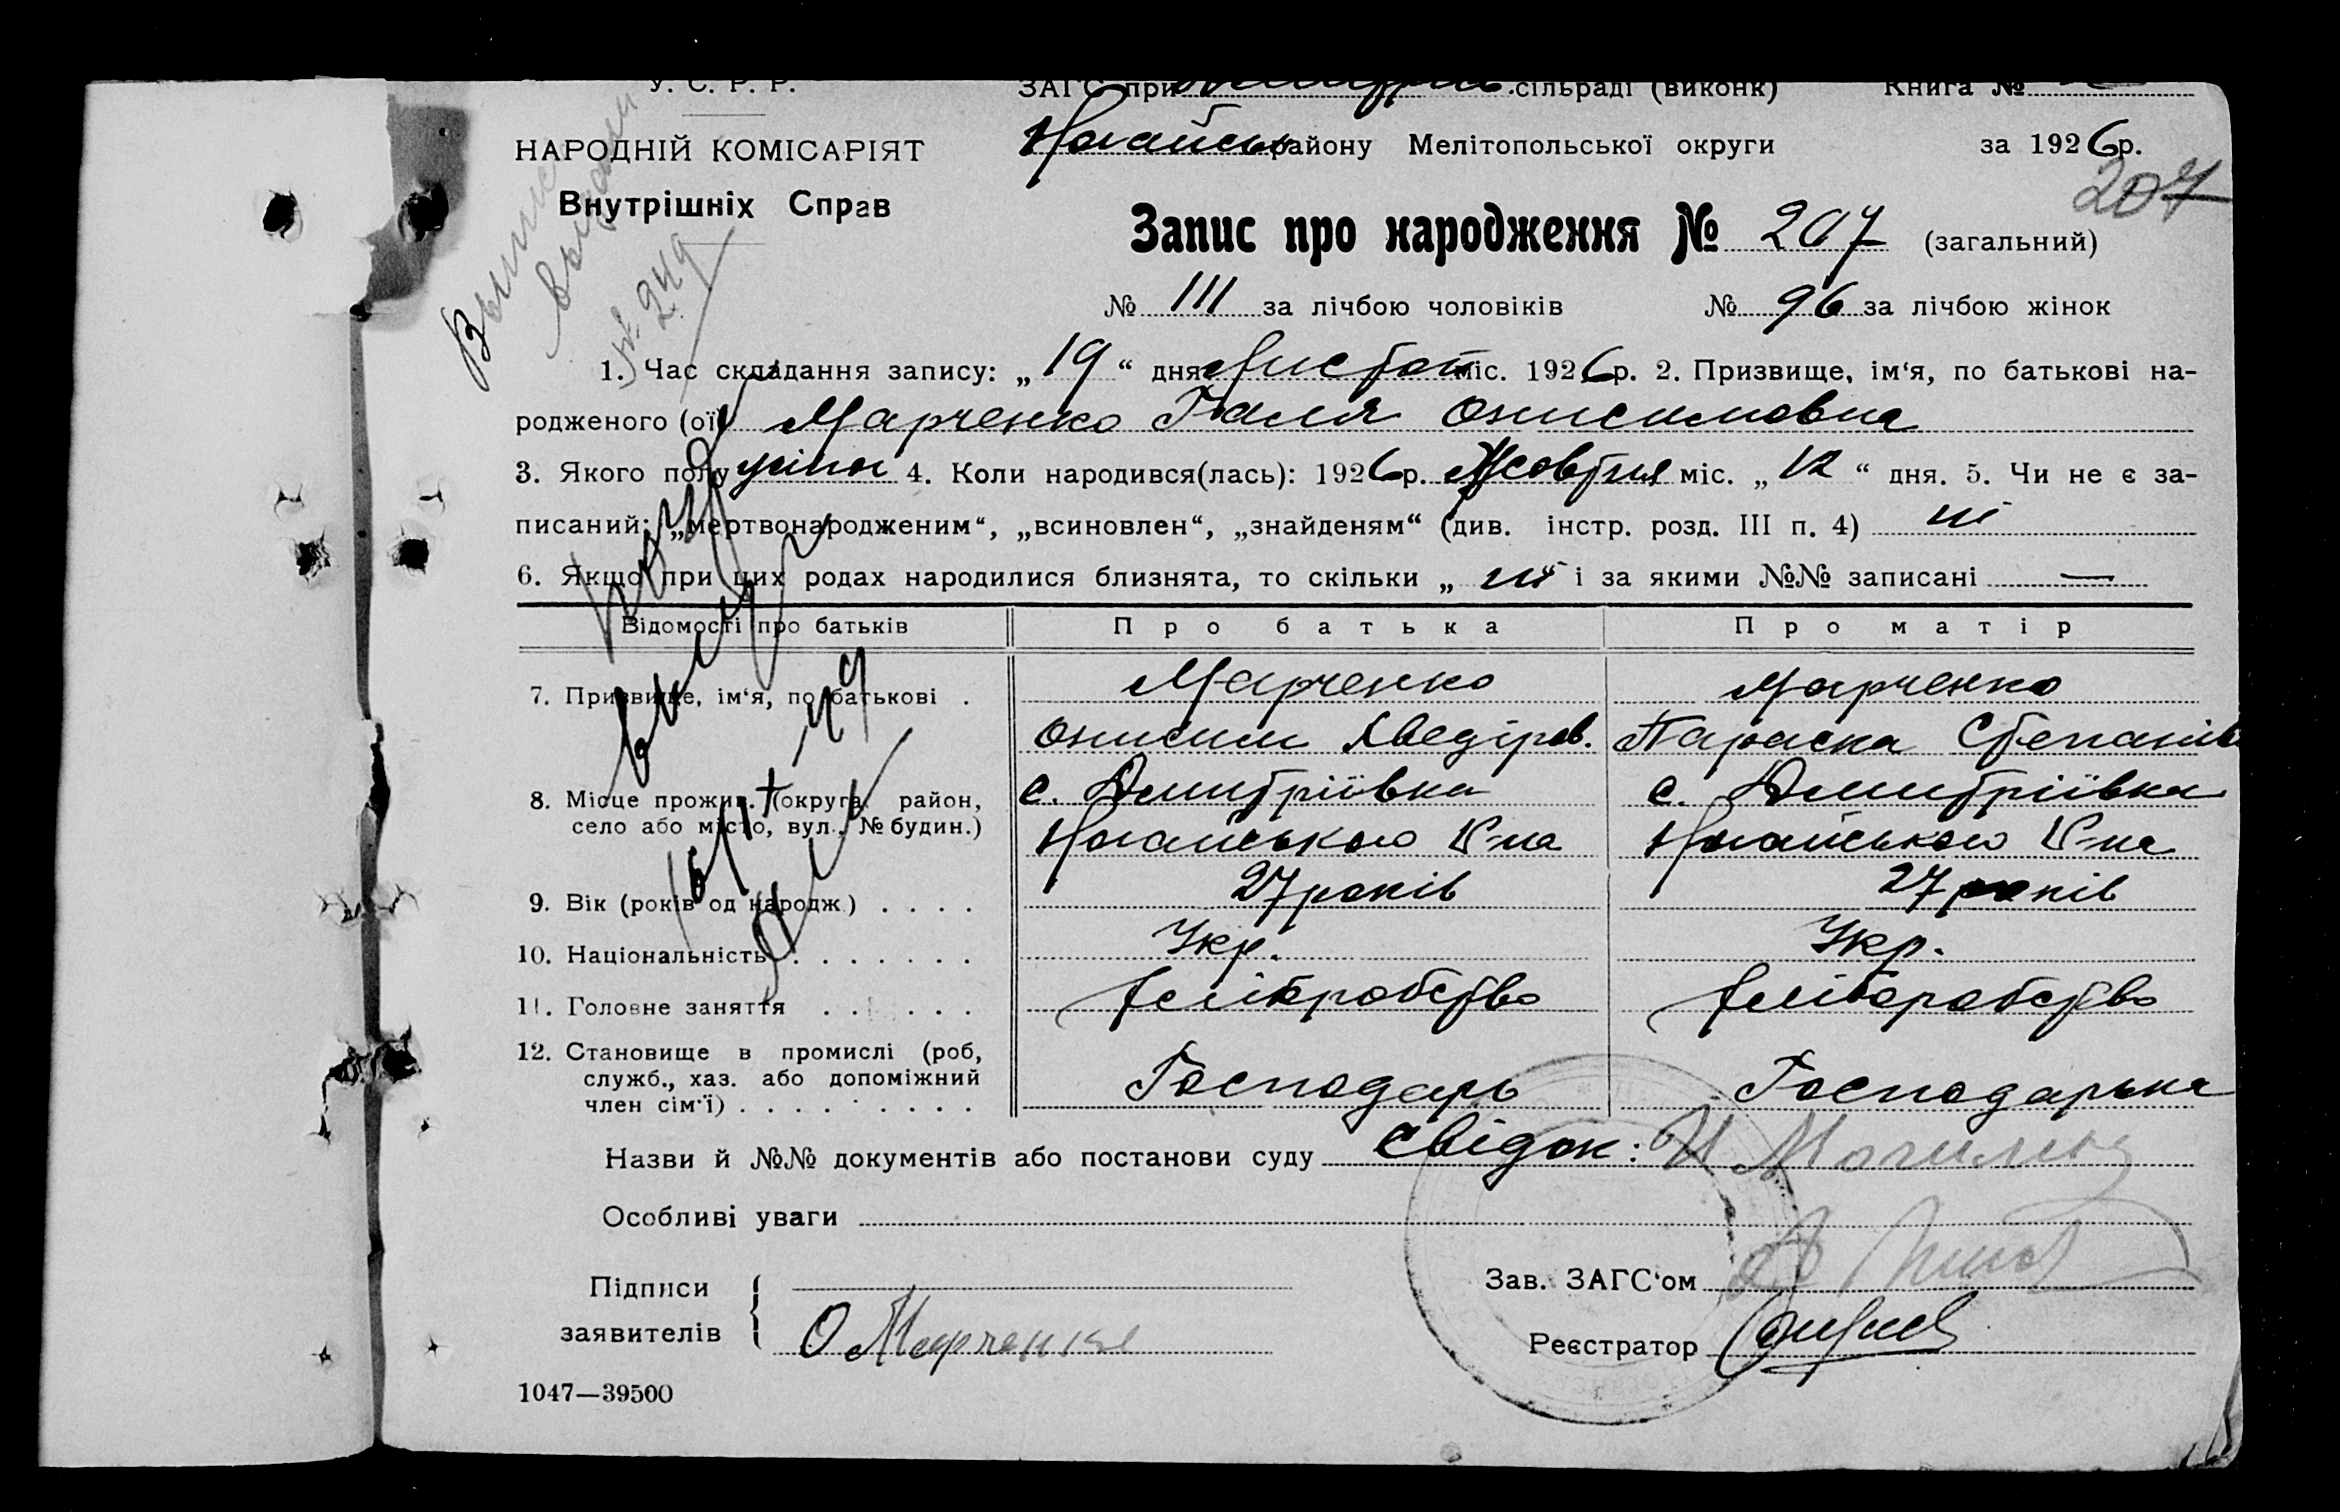 У. С. Р. Р.
ЗАГС при сільраді (виконк) Книга №
НАРОДНІЙ КОМІСАРІЯТ
Внутрішніх Справ
Ногайськ району Мелітопольської округи за 1926 р.
207
Запис про народження № 207 (загальний)
№ 111 за лічбою чоловіків № 96 за лічбою жінок
№ 249
1. Час складання запису: „19“ дня Листоп міс. 1926 р. 2. Призвище, ім‘я, по батькові на-
родженого (ої) Марченко Галя Онисимовна
3. Якого полу жіноч 4. Коли народився(лась): 1926 р. Жовтня міс. „12“ дня. 5. Чи не є за-
писаний: „мертвонародженим“, „всиновлен“, „знайденям“ (див. інстр. розд. III п. 4) ні
6. Якщо при цих родах народилися близнята, то скільки „ні“ і за якими №№ записані —
Відомості про батьків Про батька Про матір
7. Призвище, ім‘я, по батькові . Марченко Марченко
Онисим Хведіров. Параска Степанів
8. Місце прожив. (округа, район, с. Дмитріївка с. Дмитріївка
село або місто, вул., № будин.) Ногайського Р-на Ногайського Р-на
9. Вік (років од народж.) . . . . 27 років 27 років
10. Національність . . . . . . . Укр. Укр.
11. Головне заняття . . . . . . Хліборобство Хліборобство
12. Становище в промислі (роб,
служб., хаз. або допоміжний
член сім‘ї) . . . . . . . . . Господарь Господарька
Назви й №№ документів або постанови суду Свідок:
Особливі уваги
Підписи
заявителів О Марченко
Зав. ЗАГС‘ом
Реєстратор
1047—39500